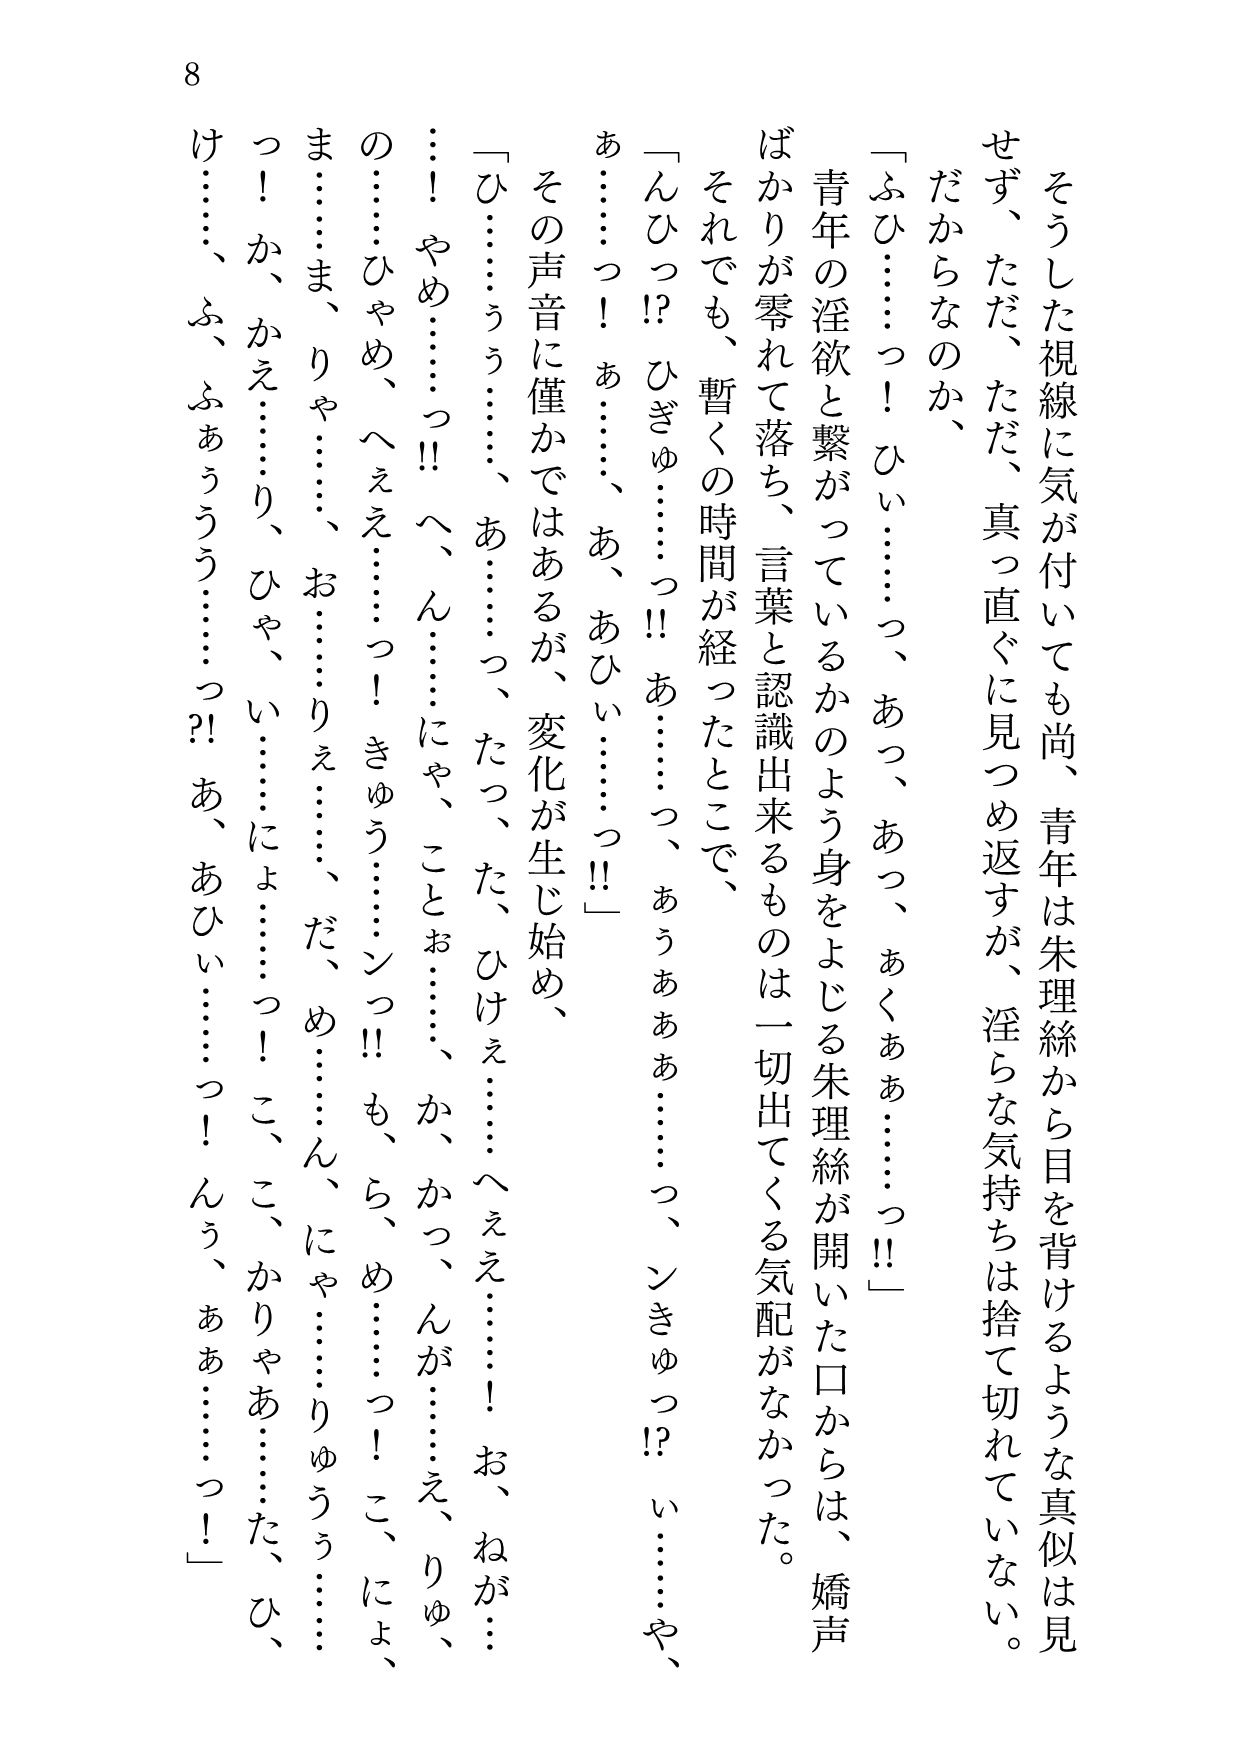 8
そうした視線に気が付いても尚、青年は朱理絲から目を背けるような真似は見
せず、ただ、ただ、真っ直ぐに見つめ返すが、淫らな気持ちは捨て切れていない。
だからなのか、
「ふひ……っ！ ひぃ……っ、あっ、あっ、ぁくぁぁ……っ!!」
青年の淫欲と繋がっているかのよう身をよじる朱理絲が開いた口からは、嬌声
ばかりが零れて落ち、言葉と認識出来るものは一切出てくる気配がなかった。
それでも、暫くの時間が経ったとこで、
「んひっ!? ひぎゅ……っ!! あ……っ、ぁぅぁぁぁ……っ、ンきゅっ!? ぃ……や、
ぁ……っ！ ぁ……、あ、あひぃ……っ!!」
その声音に僅かではあるが、変化が生じ始め、
「ひ……ぅぅ……、あ……っ、たっ、た、ひけぇ……へぇえ……！ お、ねが…
…！ やめ……っ!! へ、ん……にゃ、ことぉ……、か、かっ、んが……え、りゅ、
の……ひゃめ、へぇえ……っ！ きゅう……ンっ!! も、ら、め……っ！ こ、にょ、
ま……ま、りゃ……、お……りぇ……、だ、め……ん、にゃ……りゅうぅ……
っ！ か、かえ……り、ひゃ、い……にょ……っ！ こ、こ、かりゃあ……た、ひ、
け……、ふ、ふぁぅうう……っ?! あ、あひぃ……っ！ んぅ、ぁぁ……っ！」